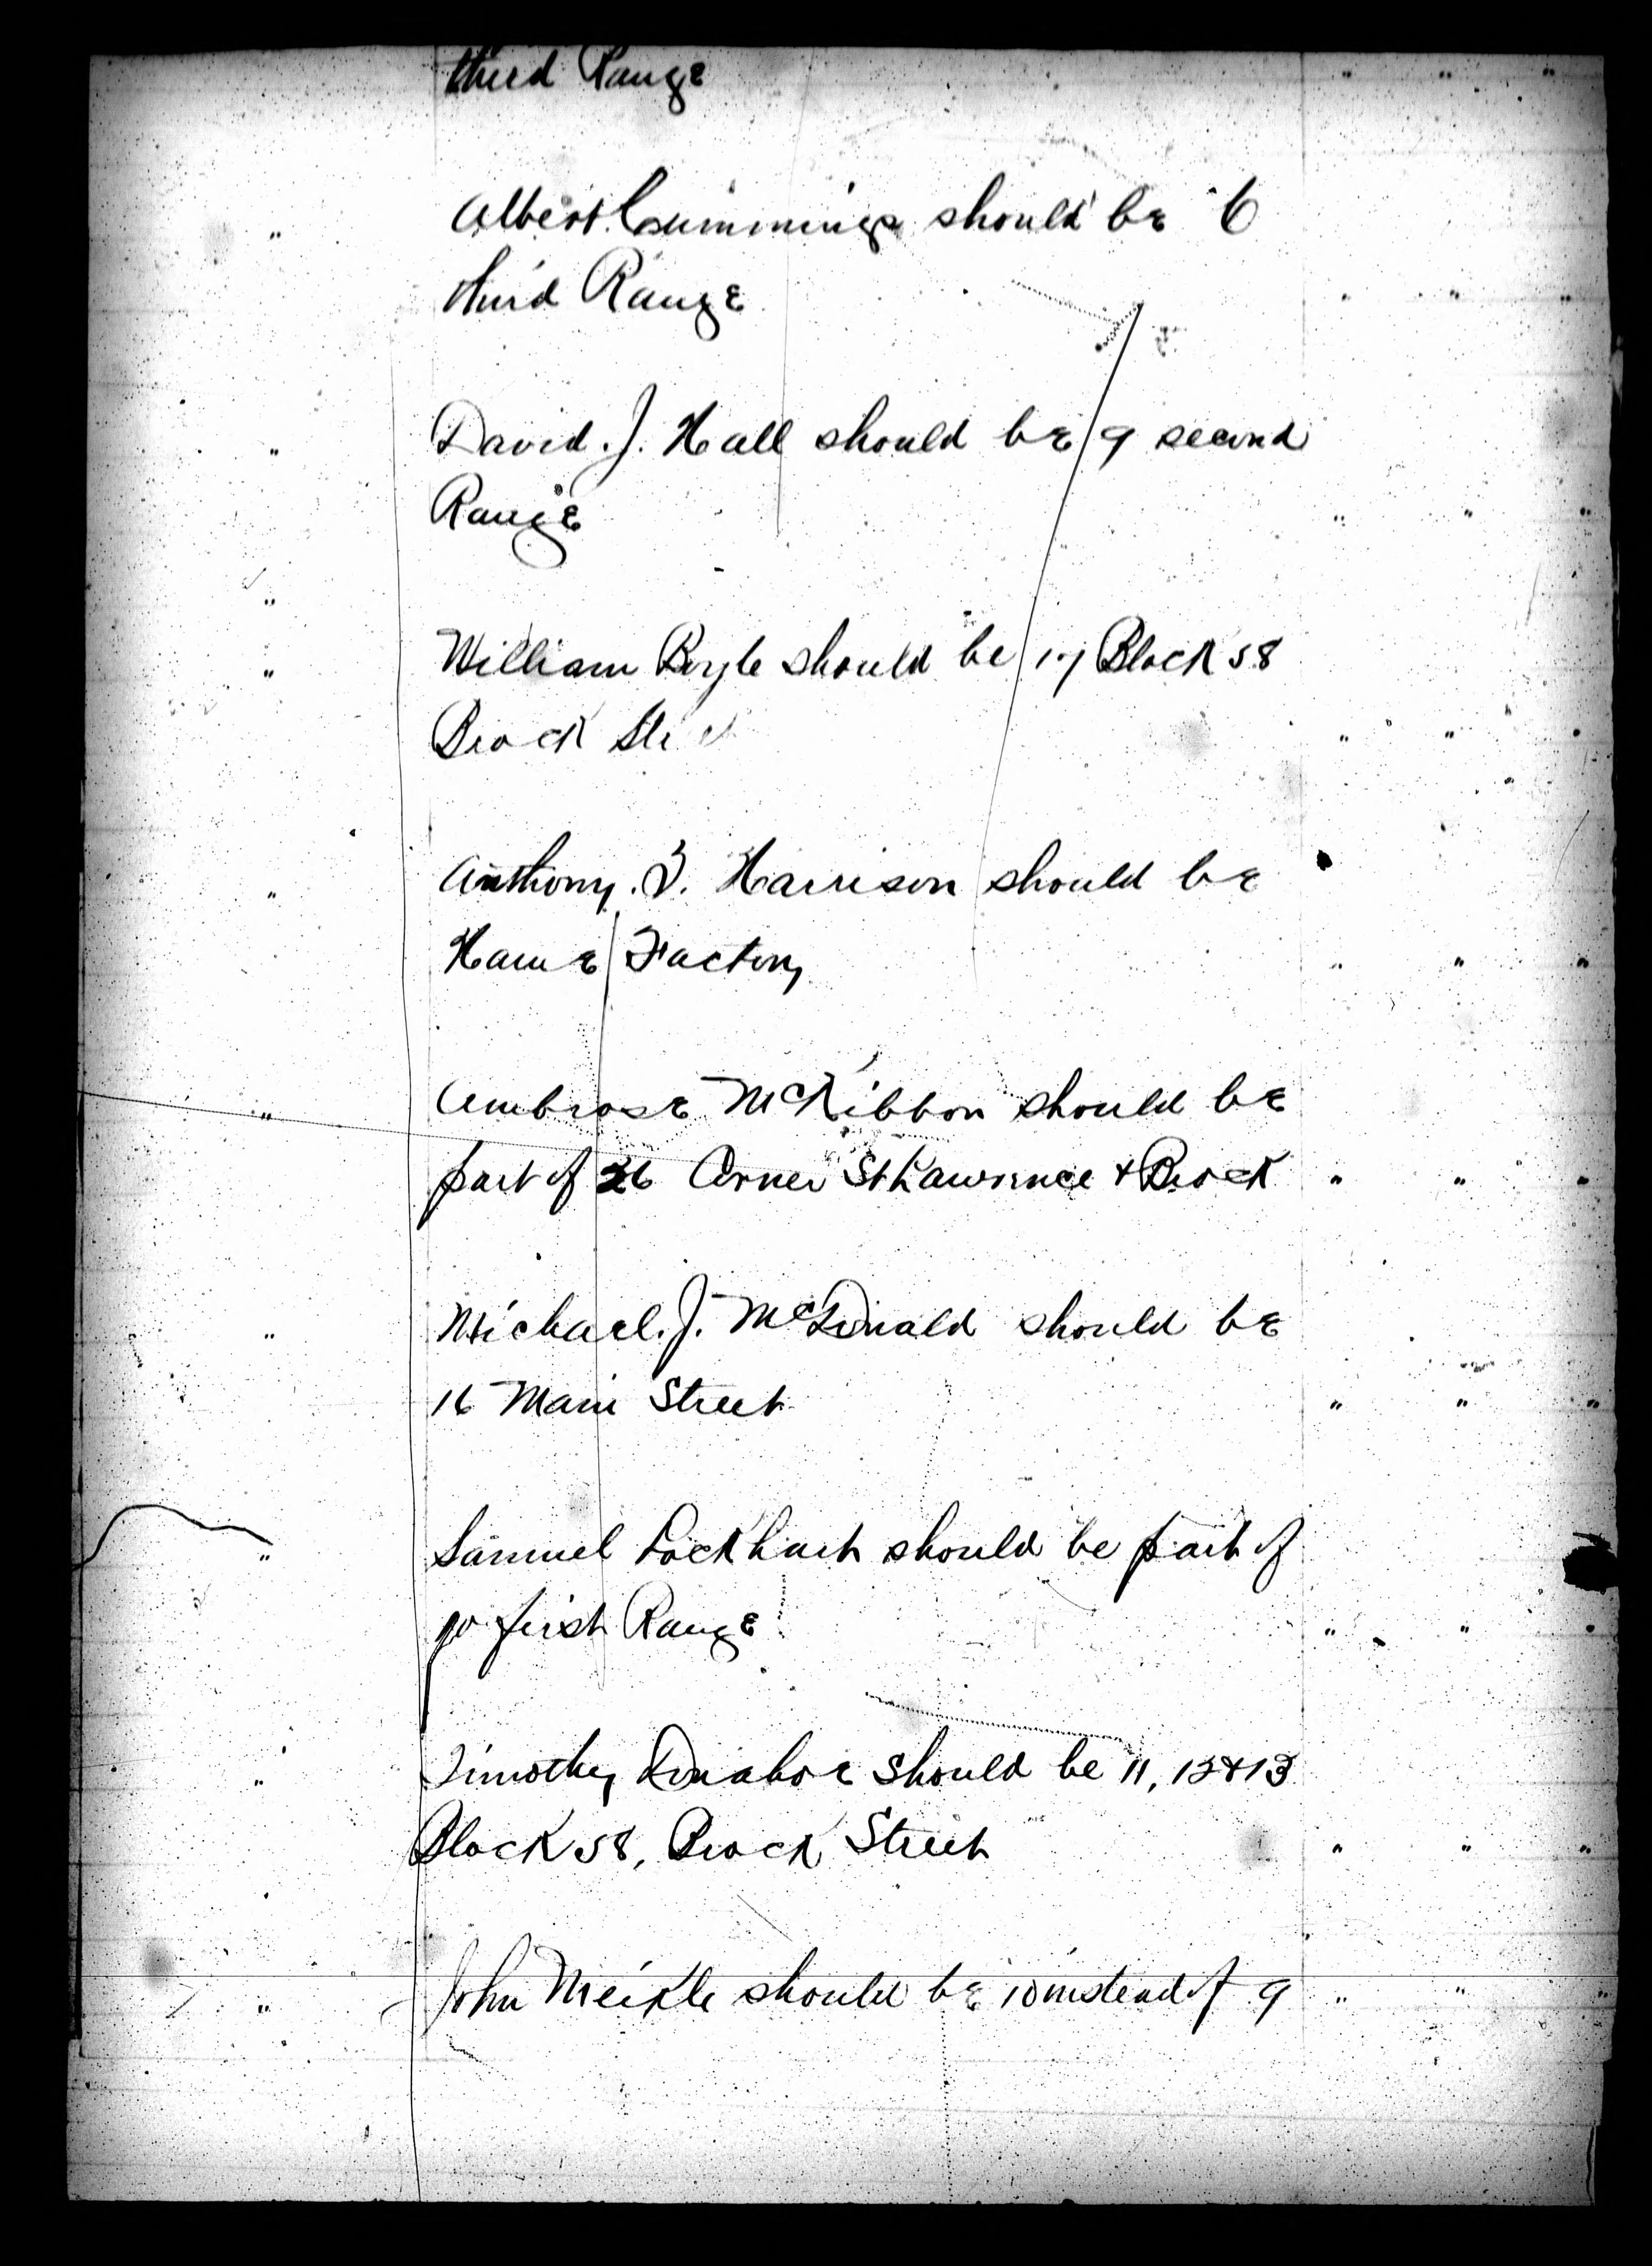 third Range " " "
" Albert Cummings should be 6
third Range " " "
" David. J. Hall should be 9 second
Range " " "
"
" William Boyle should be 17 Block 58
Brock " " "
" Anthony. J. Harrison should be
Hame Factory " " "
" Ambrose McKibbon should be
part of 26 Corner St Lawrence & Brock " " "
" Michael. J. McDonald should be
16 Main Street " " "
" Samuel Lockhart should be part of
10 first Range " " "
" Timothy Donahoe should be 11, 12 & 13
Block 58, Brock Street " " "
" John Meikle should be 10 instead of 9 " " "